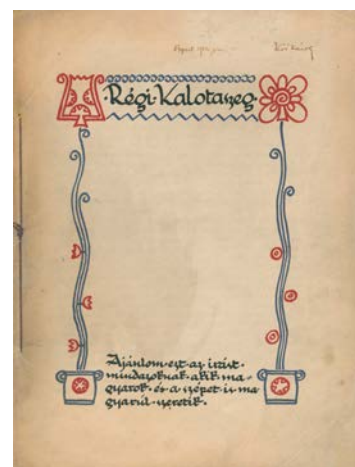 Kós Károly
·Régi·Kalotaszeg·
Ajánlom·ezt·az·irást·
mindazoknak·akik·ma-
gyarok·és·a·szépet·is·ma
gyarúl·szeretik·